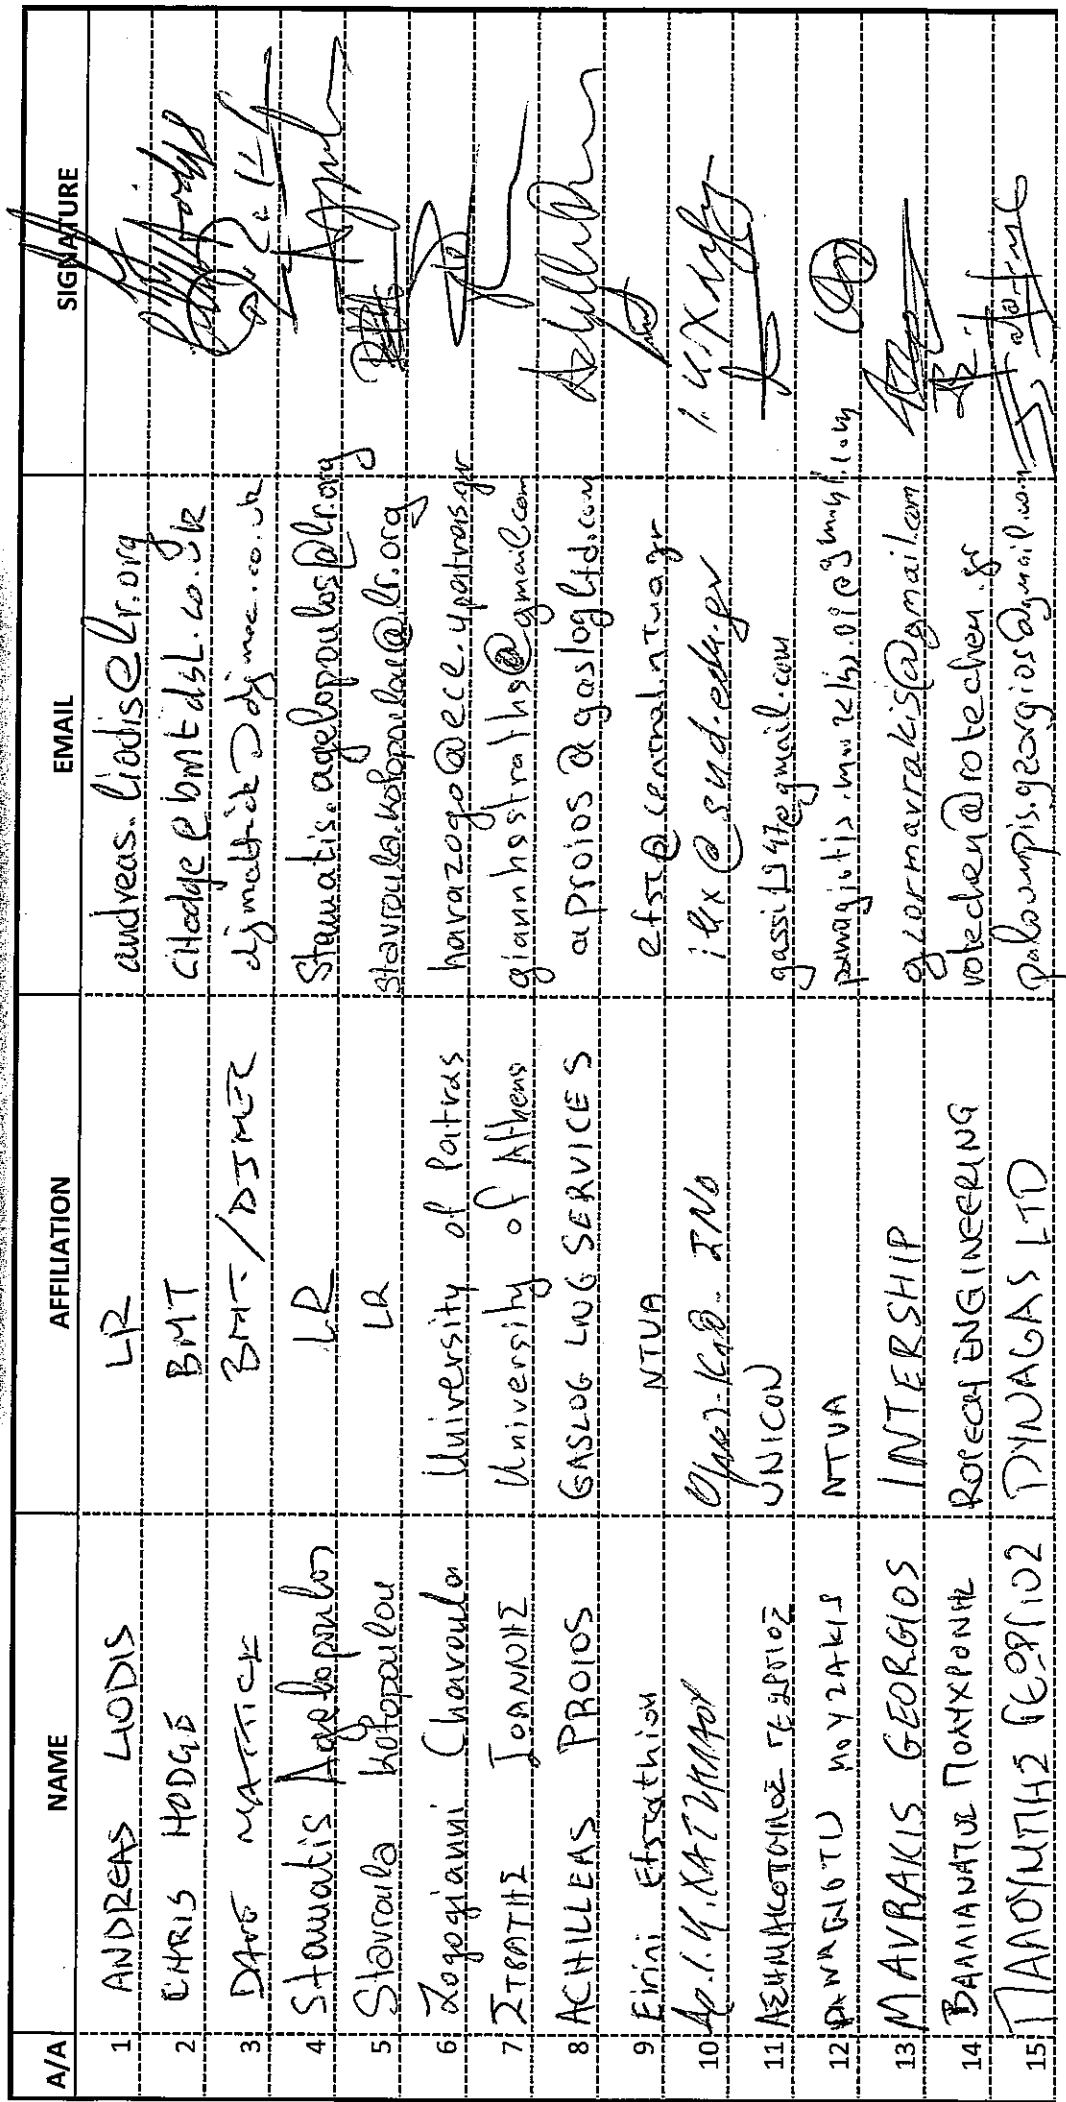 A/A NAME AFFILIATION EMAIL SIGNATURE
1 ANDREAS LIODIS LR andreas.liodis@lr.org
2 CHRIS HODGE BMT CHodge@bmtdsl.co.uk
3 DAVE MATTICK BMT/DJMEC djmattick@djmec.co.uk
4 Stamatis Agelopoulos LR Stamatis.agelopoulos@lr.org
5 Stavroula Kotopoulou LR stavroula.kotopoulou@lr.org
6 Zogogianni Charoula University of Patras harazogo@ece.upatras.gr
7 ΣΤΡΑΤΗΣ ΙΟΑΝΝΗΣ University of Athens giannhsstraths@gmail.com
8 ACHILLEAS PROIOS GASLOG LNG SERVICES aproios@gaslogltd.com
9 Eirini Efstathiou NTUA efst@central.ntua.gr
10
11 ΑΣΗΜΑΚΟΠΟΥΛΟΣ ΓΕΩΡΓΙΟΣ UNICON
12 NTUA
13 MAVRAKIS GEORGIOS INTERSHIP giormavrakis@gmail.com
14 ΒΑΛΛΙΑΝΑΤΟΣ ΠΟΛΥΧΡΟΝΗΣ ROTECH ENGINEERING rotechen@rotechen.gr
15 ΠΑΛΟΥΜΠΗΣ ΓΕΩΡΓΙΟΣ DYNAGAS LTD paloumpis.georgios@gmail.com